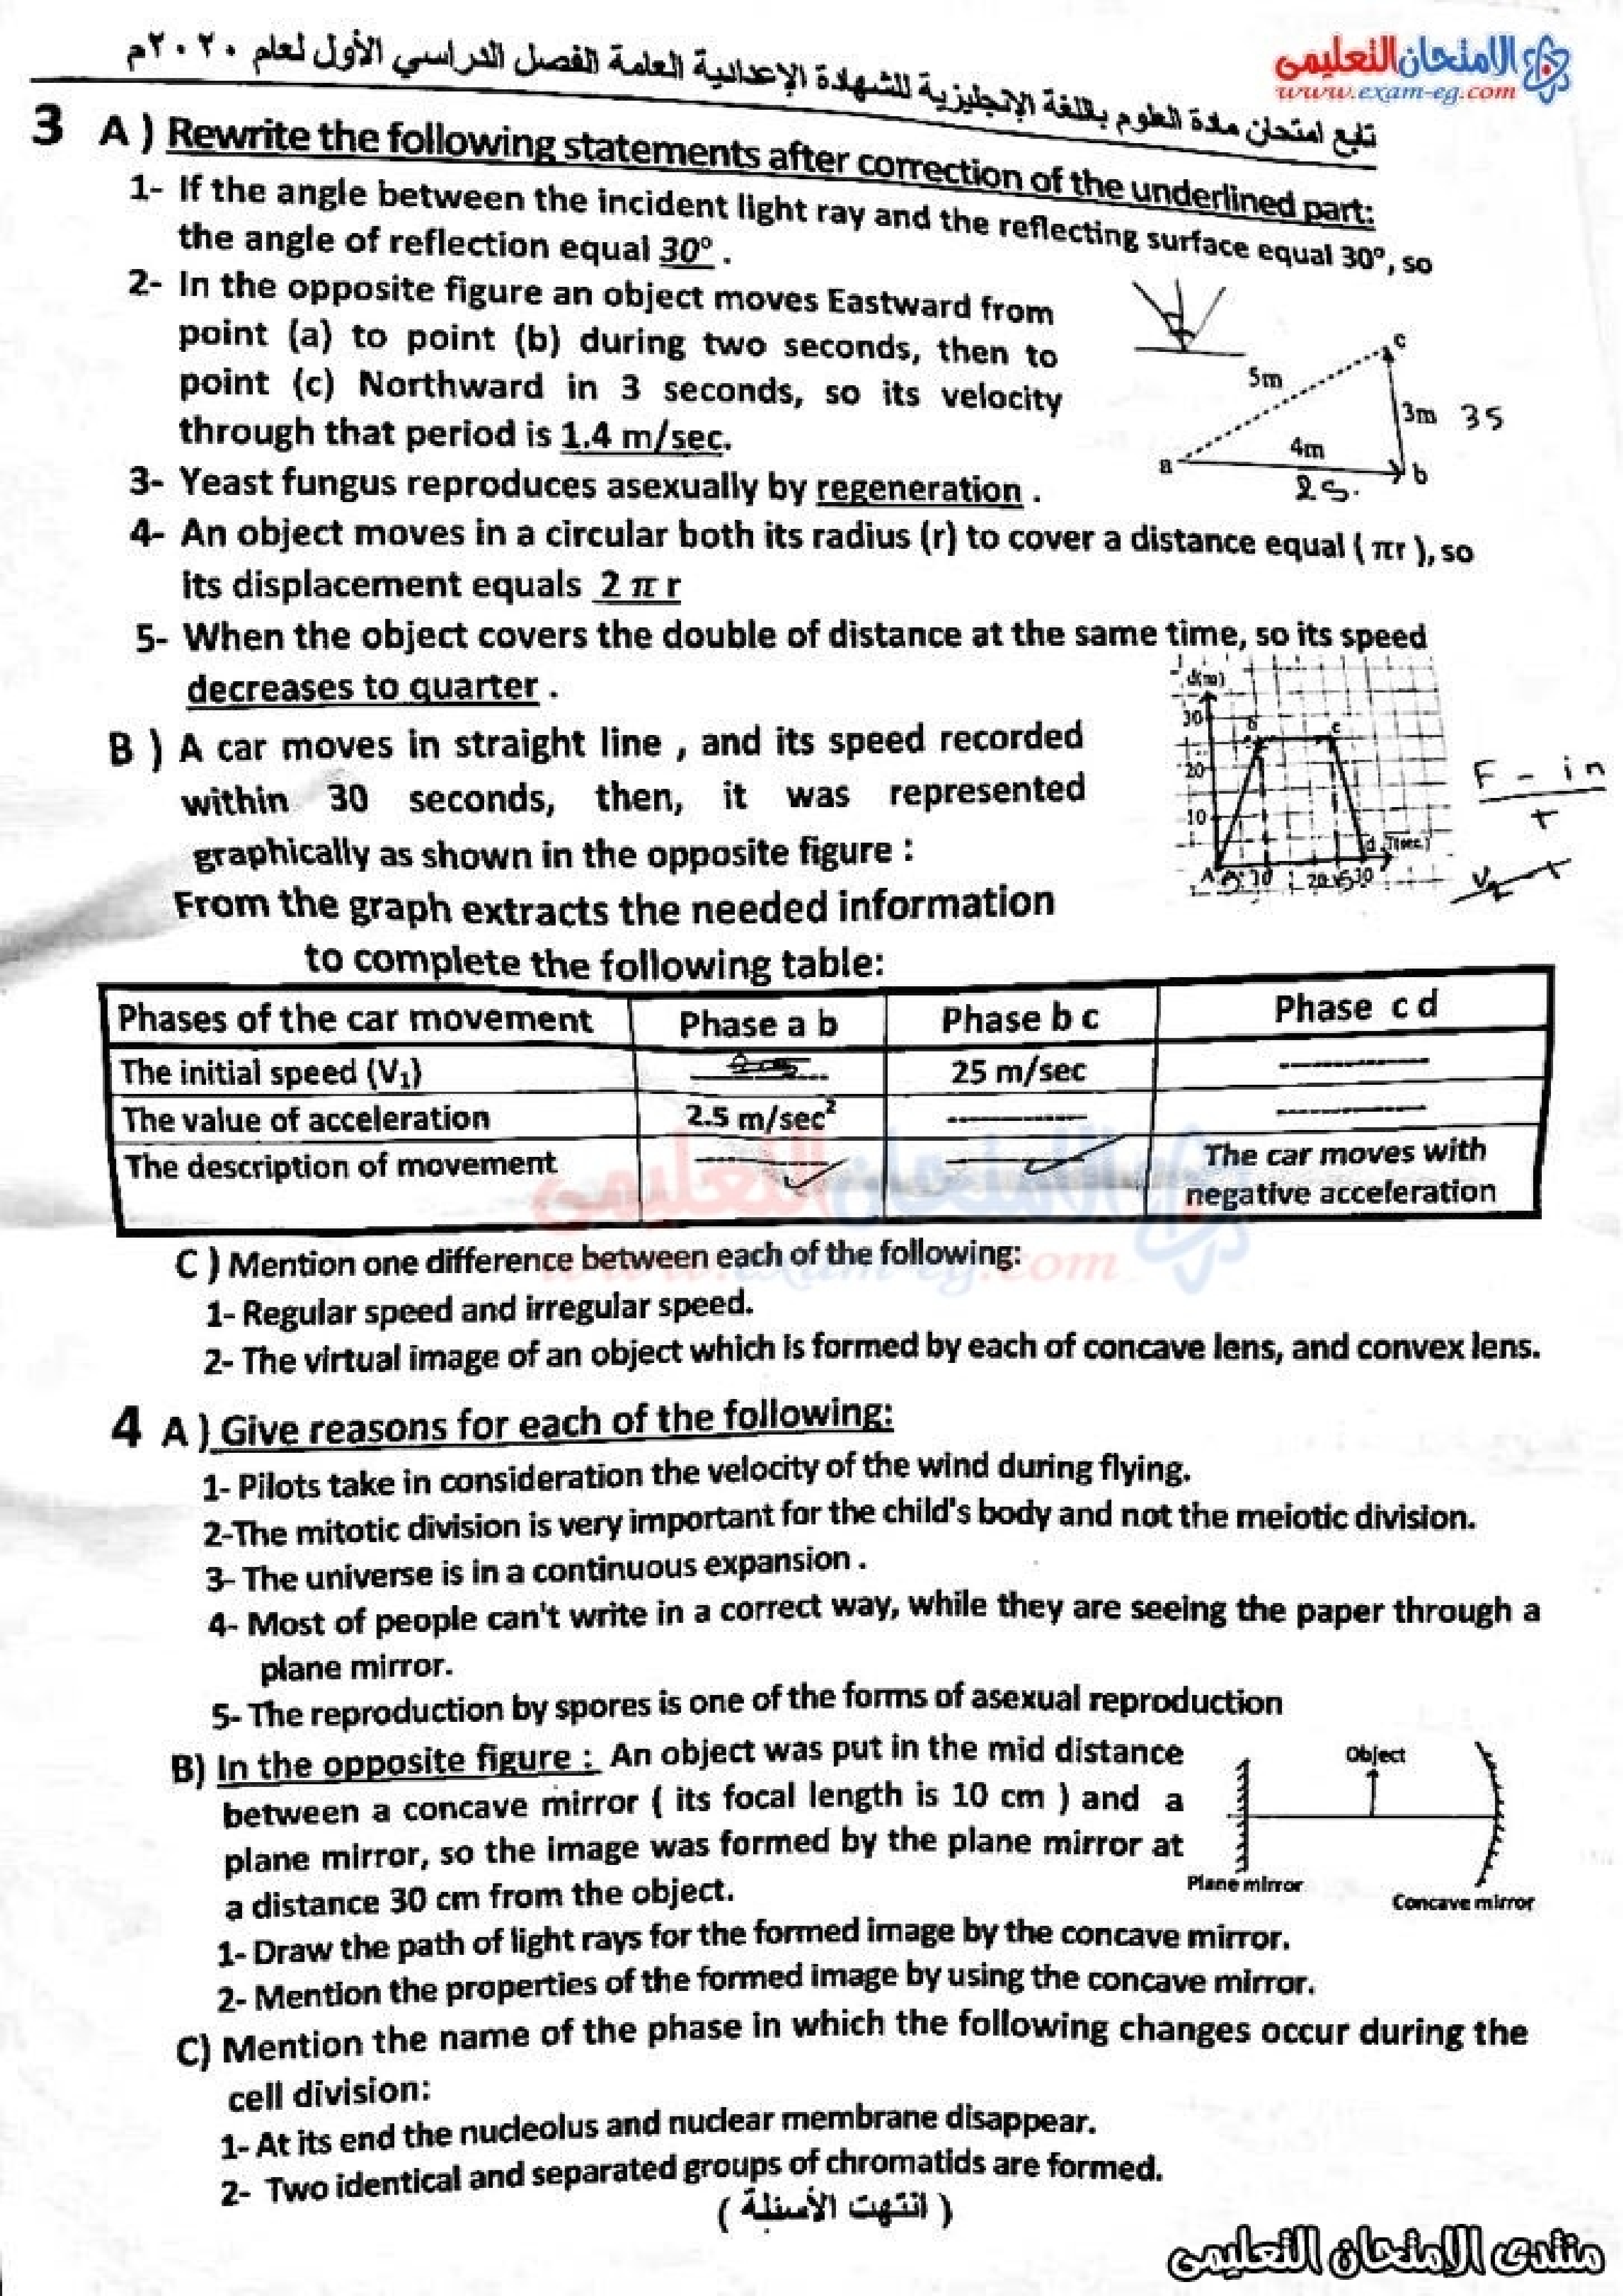 الامتحان التعليمى
www.exam-eg.com
تابع امتحان مادة العلوم باللغة الإنجليزية للشهادة الإعدادية العامة الفصل الدراسي الأول لعام ٢٠٢٠م
3 A ) Rewrite the following statements after correction of the underlined part:
1- If the angle between the incident light ray and the reflecting surface equal 30°, so
the angle of reflection equal 30° .
2- In the opposite figure an object moves Eastward from
point (a) to point (b) during two seconds, then to
point (c) Northward in 3 seconds, so its velocity
through that period is 1.4 m/sec.
c
5m
3m 3S
4m
a
b
2S.
3- Yeast fungus reproduces asexually by regeneration .
4- An object moves in a circular both its radius (r) to cover a distance equal ( πr ), so
its displacement equals 2 π r
5- When the object covers the double of distance at the same time, so its speed
decreases to quarter .
B ) A car moves in straight line , and its speed recorded
within 30 seconds, then, it was represented
graphically as shown in the opposite figure :
From the graph extracts the needed information
to complete the following table:
d(m)
30
b c
20
10
d T(sec.)
A 5 10 20 25 30
F - in
t
Phases of the car movement Phase a b Phase b c Phase c d
The initial speed (V₁) ........... 25 m/sec ...........
The value of acceleration 2.5 m/sec² ........... ...........
The description of movement ........... ........... The car moves with
negative acceleration
الامتحان التعليمى
www.exam-eg.com
C ) Mention one difference between each of the following:
1- Regular speed and irregular speed.
2- The virtual image of an object which is formed by each of concave lens, and convex lens.
4 A ) Give reasons for each of the following:
1- Pilots take in consideration the velocity of the wind during flying.
2-The mitotic division is very important for the child's body and not the meiotic division.
3- The universe is in a continuous expansion .
4- Most of people can't write in a correct way, while they are seeing the paper through a
plane mirror.
5- The reproduction by spores is one of the forms of asexual reproduction
B) In the opposite figure : An object was put in the mid distance
between a concave mirror ( its focal length is 10 cm ) and a
plane mirror, so the image was formed by the plane mirror at
a distance 30 cm from the object.
Object
Plane mirror
Concave mirror
1- Draw the path of light rays for the formed image by the concave mirror.
2- Mention the properties of the formed image by using the concave mirror.
C) Mention the name of the phase in which the following changes occur during the
cell division:
1- At its end the nucleolus and nuclear membrane disappear.
2- Two identical and separated groups of chromatids are formed.
( انتهت الأسئلة )
منتدى الامتحان التعليمى